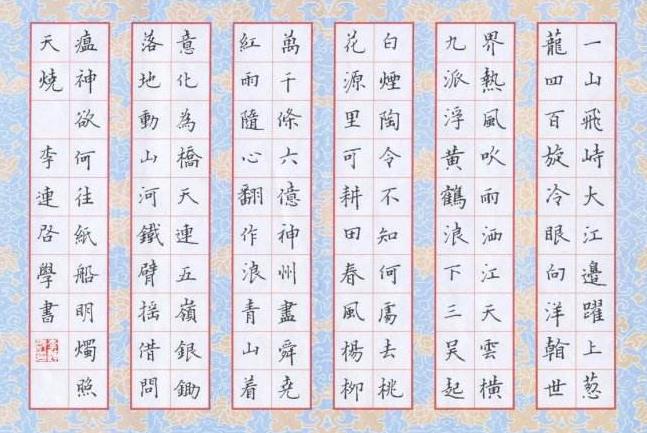 一山飛峙大江邊躍上葱
龍四百旋冷眼向洋翰世
界熱風吹雨洒江天雲橫
九派浮黃鶴浪下三吳起
白煙陶令不知何處去桃
花源里可耕田春風楊柳
萬千條六億神州盡舜堯
紅雨隨心翻作浪青山着
意化為橋天連五嶺銀鋤
落地動山河鐵臂搖借問
瘟神欲何往紙船明燭照
天燒 李連啓學書